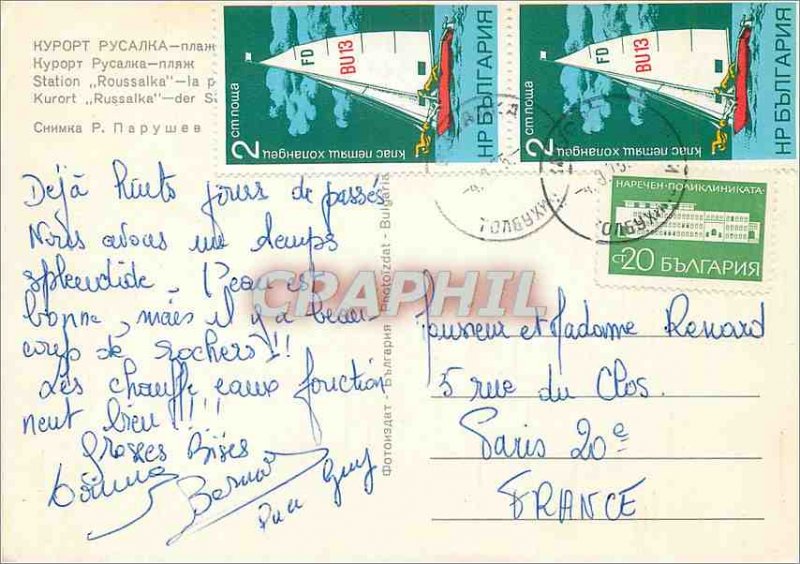 КУРОРТ РУСАЛКА—плаж
Курорт Русалка—пляж
Station „Roussalka"—la p
Kurort „Russalka"—der S
Снимка Р. Парушев
Déjà huit jours de passés
Nous avons un temps
splendide, l'eau est
bonne, mais il y a beau-
coup de rochers!!!
Les chauffe eaux fonction
nent bien!!!!
Grosses Bises
Bernard
Guy
Фотоиздат - България - Photoizdat - Bulgaria
FD
BU13
2 ст поща
клас летящ холандец
НР БЪЛГАРИЯ
FD
BU13
2 ст поща
клас летящ холандец
НР БЪЛГАРИЯ
НАРЕЧЕН·ПОЛИКЛИНИКАТА·
ст 20 БЪЛГАРИЯ
CRAPHIL
Monsieur et Madame Renard
5 rue du Clos.
Paris 20e
FRANCE